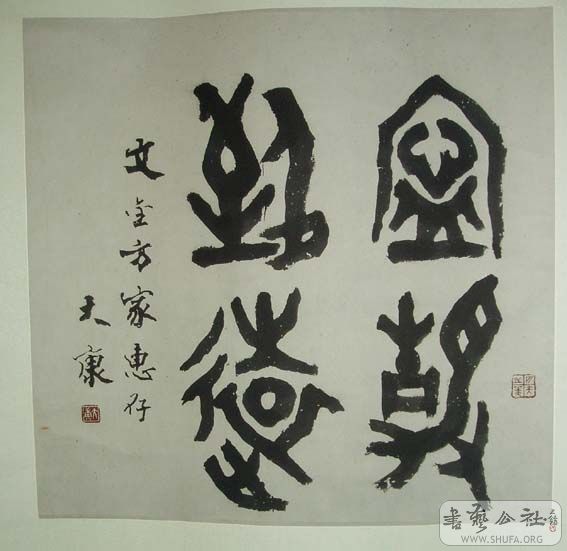 寧靜
致遠
文金方家惠存
大康
書藝公社
WWW.SHUFA.ORG